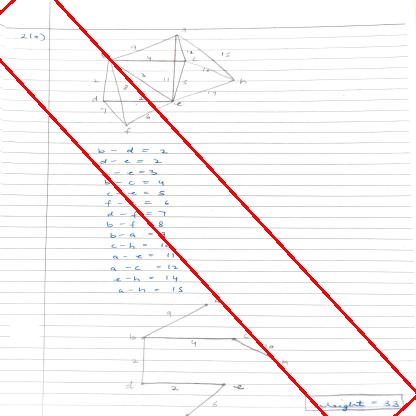 2(a)
a
9
15
4
c
12
2
3
11
5
h
8
d
e
7
6
f
b - d = 2
d - e = 2
- e = 3
b - c = 4
c - e = 5
f - = 6
d - f = 7
b - f = 8
b - a = 9
c - h = 10
a - e = 11
a - c = 12
e - h = 14
a - h = 15
9
b
4
2
h
d
2
e
6
Weight = 33